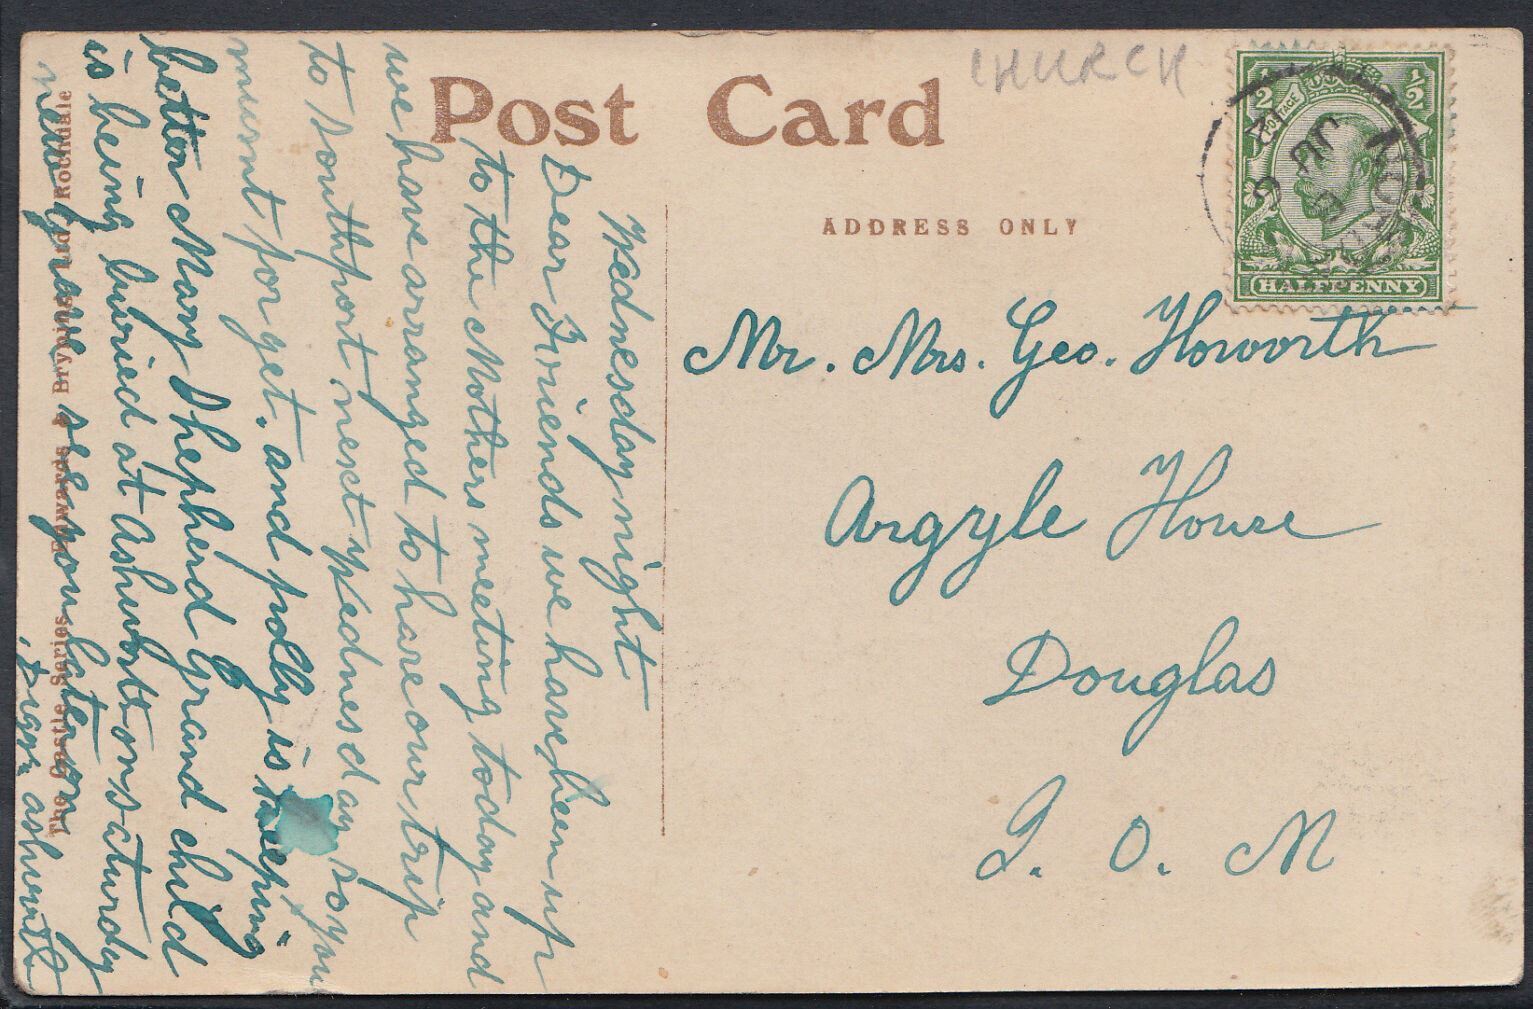 Post Card
CHURCH
ADDRESS ONLY
1/2
1/2
POSTAGE
HALFPENNY
JU
Mr. Mrs. Geo. Howorth
Argyle House
Douglas
I. O. M
Wednesday night
Dear Friends we have been up
to the Mothers meeting today and
we have arranged to have our trip
to Southport next Wednesday so you
musnt forget. and polly is keeping
better Mary Shepherd Grand child
is being buried at Ashworth on saturday
will see you later on
ashworth
The Castle Series, Edwards & Bryning Ltd Rochdale